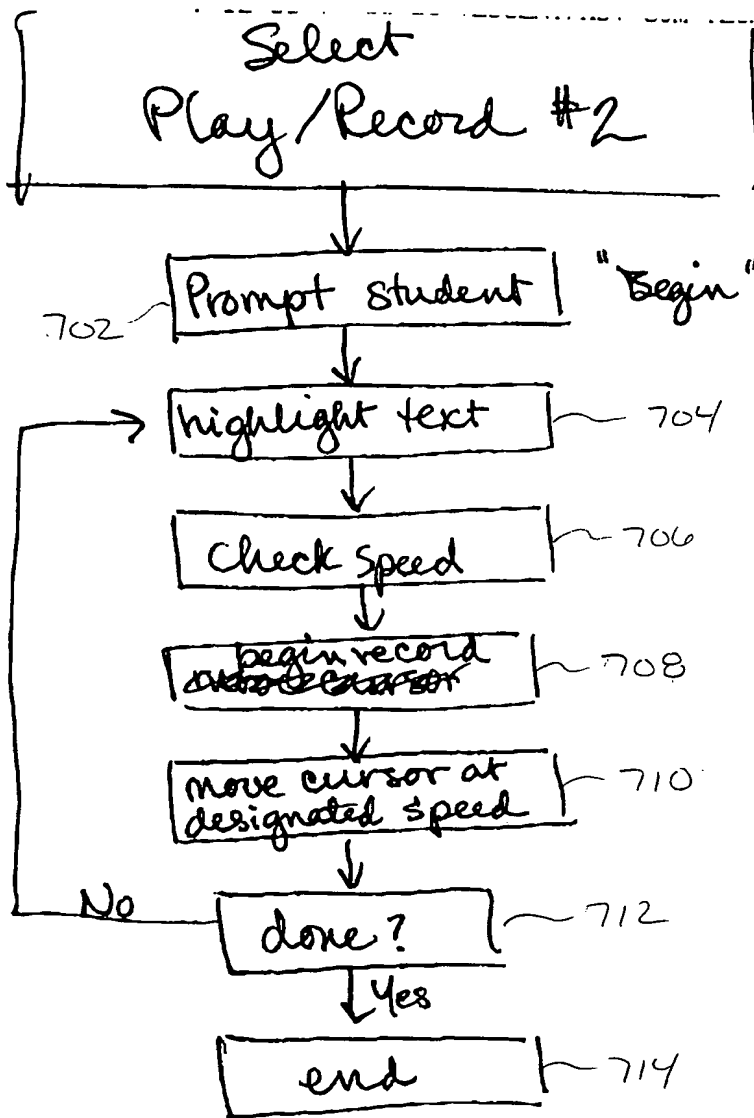 Select
Play/Record #2
702 Prompt student "Begin"
highlight text 704
Check speed 706
begin record 708
move cursor at 710
designated speed
No done? 712
Yes
end 714